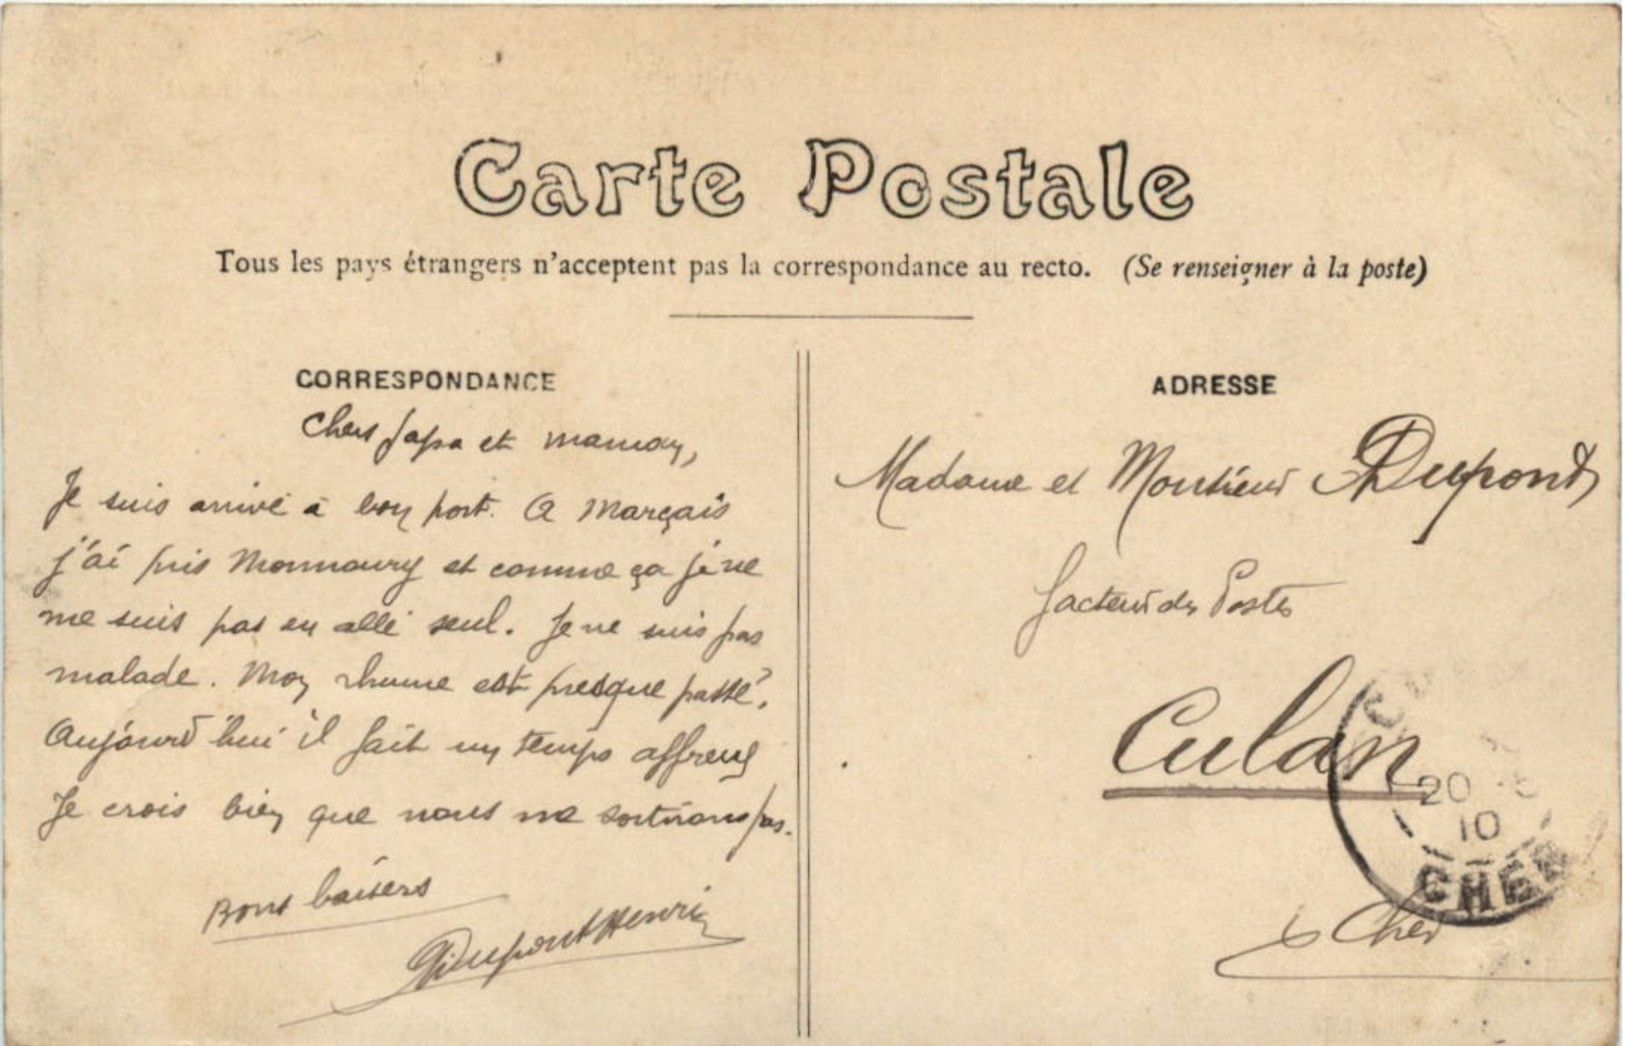 Carte Postale
Tous les pays étrangers n'acceptent pas la correspondance au recto. (Se renseigner à la poste)
CORRESPONDANCE
Chers Papa et maman,
Je suis arrivé à bon port. A Marçais
j'ai pris Monmoury et comme ça je ne
me suis pas en allé seul. Je ne suis pas
malade. Mon rhume est presque passé.
Aujourd'hui il fait un temps affreux
Je crois bien que nous ne sortirons pas.
Bons baisers
Dupont Henri
ADRESSE
Madame et Monsieur Dupont
facteur des Postes
Culan
Cher
20
10
CHER